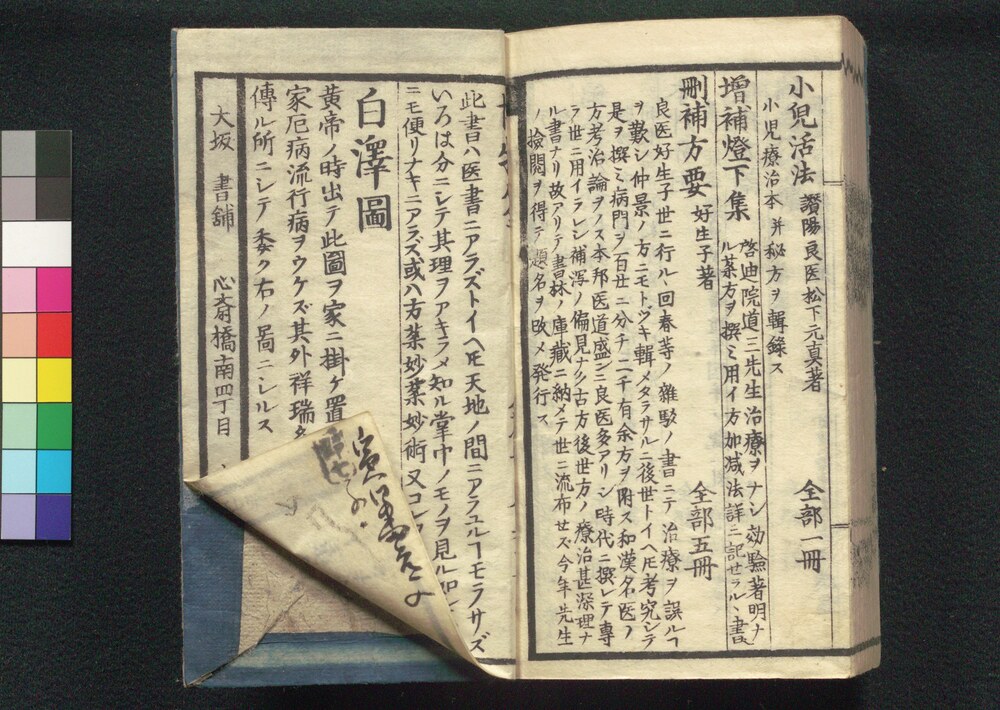 小児活法 讃陽良医松下元真著 全部一冊
小児療治本并秘方ヲ輯録ス
増補燈下集 啓迪院道三先生治療ヲナシ効驗著明ナ
ル薬方ヲ撰ミ用イ方加减法詳ニ記セラル、書
刪補方要 好生子著 全部五冊
良医好生子世ニ行ル、回春等ノ雜駁ノ書ニテ治療ヲ誤ルヿ
ヲ歎シ仲景ノ方ニモトヅキ輯メタラサルニ後世トイヘ𪜈考究シテ
是ヲ撰ミ病門ヲ百廿ニ分チ二千有余方ヲ附ス和漢名医ノ
方考治論ヲノス本邦医道盛ン三良医多アリシ時代ニ撰レテ專
ラ世ニ用イラレシ補瀉ノ偏見ナク古方後世方ノ療治甚深理ナ
ル書ナリ故アリテ書林ノ庫藏ニ納メテ世ニ流布セズ今年先生
ノ撿閲ヲ得テ題名ヲ改メ発行ス
此書ハ医書ニアラズトイヘ𪜈天地ノ間ニアラユルヿモラサズ
いろは分ニシテ其理ヲアキラメ知ル掌巾ノモノヲ見ル如シ
ニモ便リナキニアラズ或ハ方薬妙薬妙術又コレ
白澤圖
黄帝ノ時出テ此圖ヲ家ニ掛ケ置
家厄病流行病ヲウケズ其外祥瑞多
傳ル所ニシテ委ク右ノ啚ニシルス
大坂 書舗 心斎橋南四丁目